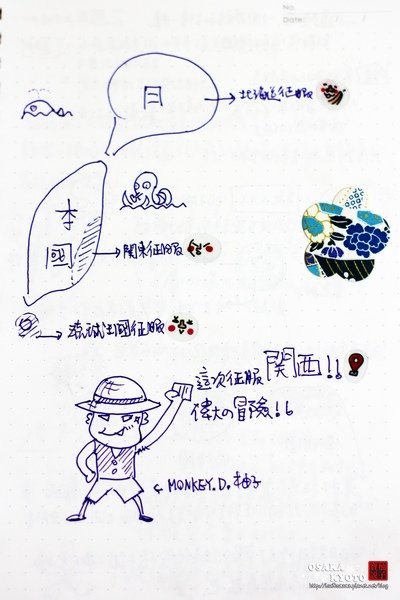 No.
Date
日
北海道征服
本
國
関東征服
征服
這次征服関西!!
偉大の冒險!!
MONKEY.D.柚子
OSAKA
KYOTO